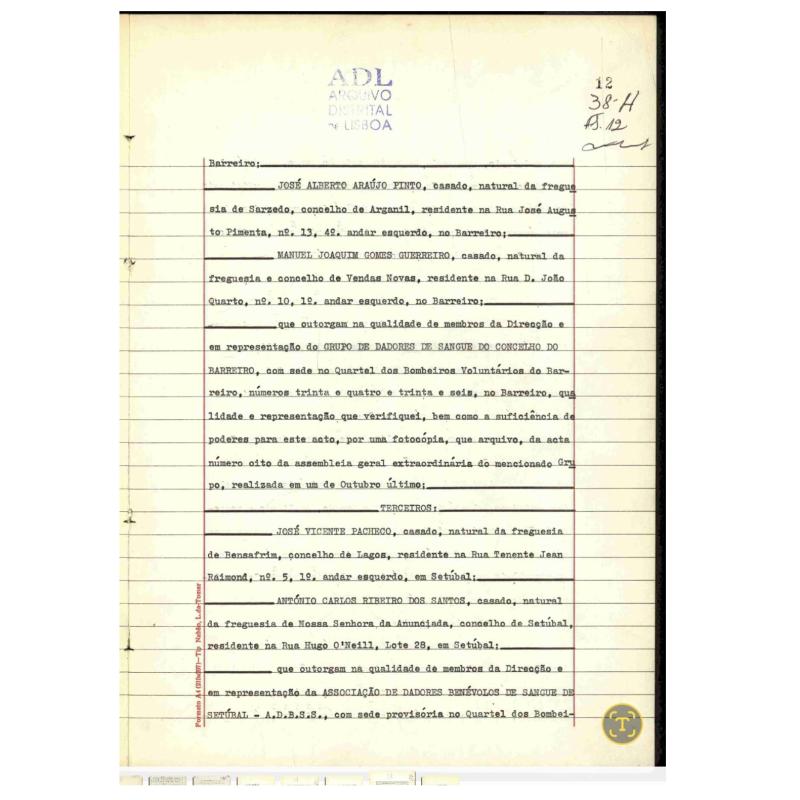 ADL
ARQUIVO
DISTRITAL
DE LISBOA
12
38-H
Fs. 12
Barreiro;
JOSÉ ALBERTO ARAÚJO PINTO, casado, natural da fregue
sia de Sarzedo, concelho de Arganil, residente na Rua José Augus
to Pimenta, nº. 13, 4º. andar esquerdo, no Barreiro;
MANUEL JOAQUIM GOMES GUERREIRO, casado, natural da
freguesia e concelho de Vendas Novas, residente na Rua D. João
Quarto, nº. 10, 1º. andar esquerdo, no Barreiro;
que outorgam na qualidade de membros da Direcção e
em representação do GRUPO DE DADORES DE SANGUE DO CONCELHO DO
BARREIRO, com sede no Quartel dos Bombeiros Voluntários do Bar-
reiro, números trinta e quatro e trinta e seis, no Barreiro, qua
lidade e representação que verifiquei, bem como a suficiência de
poderes para este acto, por uma fotocópia, que arquivo, da acta
número oito da assembleia geral extraordinária do mencionado Gru
po, realizada em um de Outubro último;
TERCEIROS:
JOSÉ VICENTE PACHECO, casado, natural da freguesia
de Bensafrim, concelho de Lagos, residente na Rua Tenente Jean
Raimond, nº. 5, 1º. andar esquerdo, em Setúbal;
ANTÓNIO CARLOS RIBEIRO DOS SANTOS, casado, natural
da freguesia de Nossa Senhora da Anunciada, concelho de Setúbal,
residente na Rua Hugo O'Neill, Lote 28, em Setúbal;
que outorgam na qualidade de membros da Direcção e
em representação da ASSOCIAÇÃO DE DADORES BENÉVOLOS DE SANGUE DE
SETÚBAL - A.D.B.S.S., com sede provisória no Quartel dos Bombei-
Formato A4 (210x297)—Tip. Nabão, L.da-Tomar
T